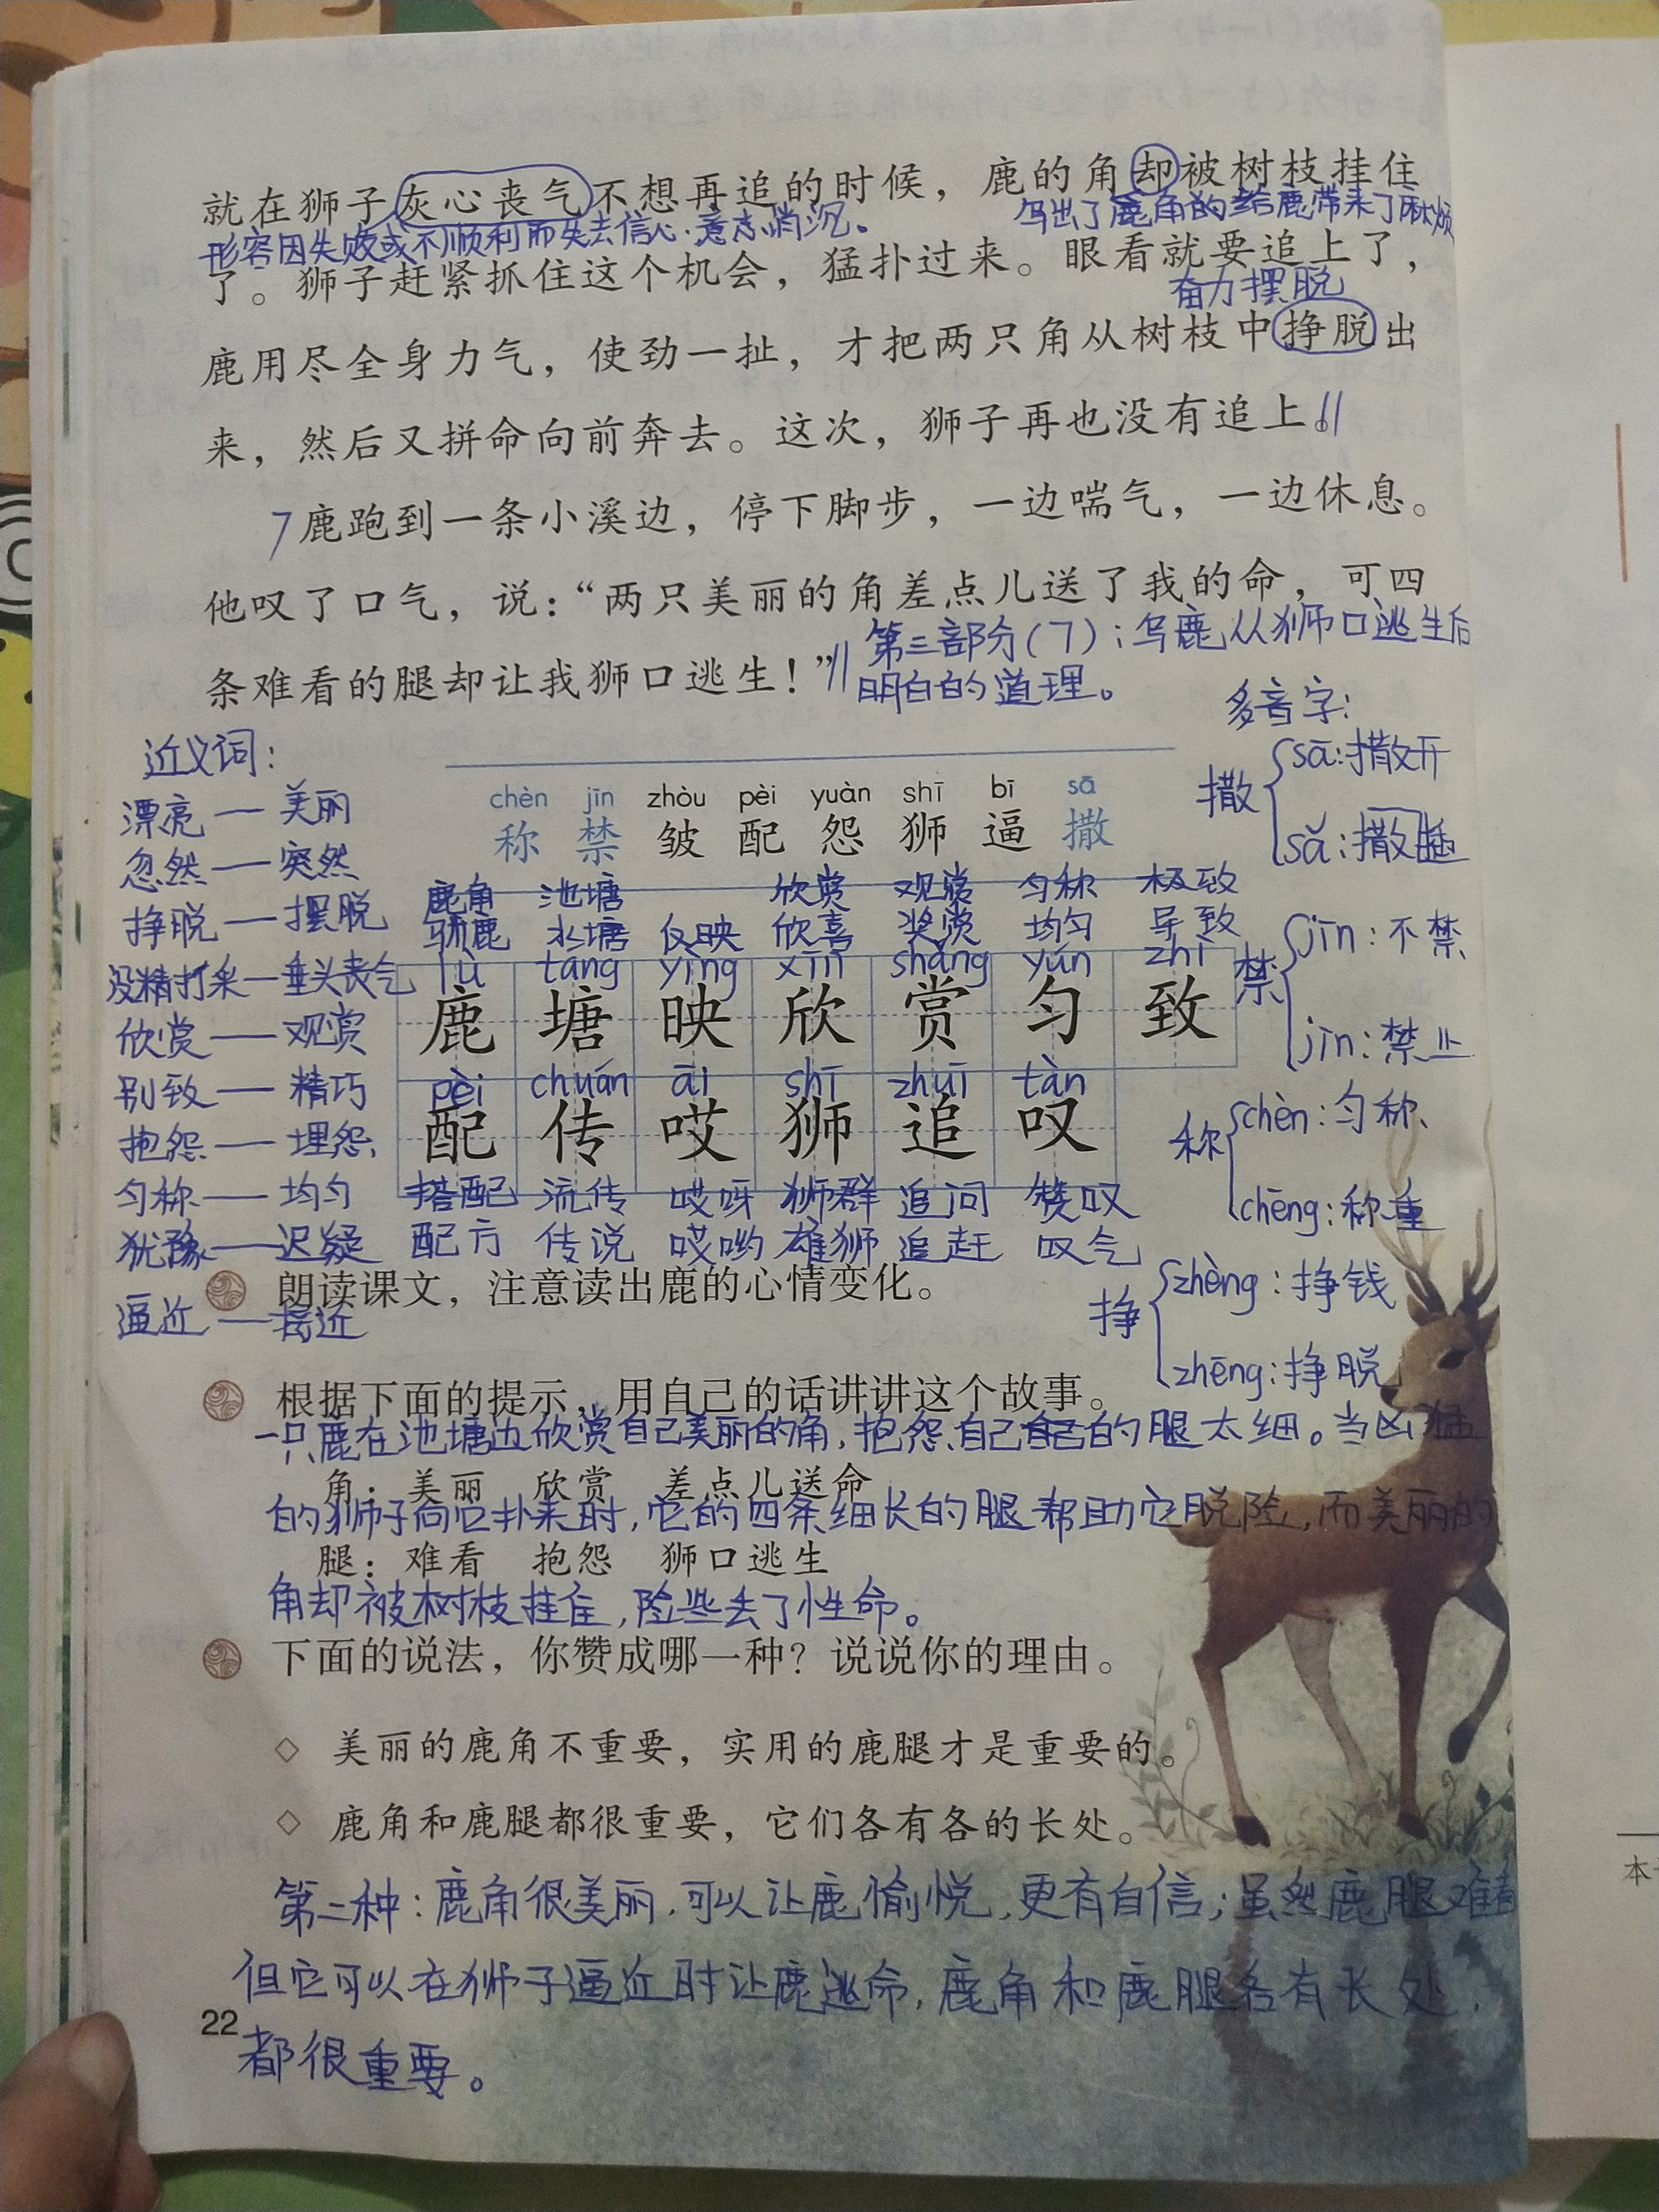 就在狮子灰心丧气不想再追的时候，鹿的角却被树枝挂住
形容因失败或不顺利而失去信心·意志消沉。
写出了鹿角的给鹿带来了麻烦
了。狮子赶紧抓住这个机会，猛扑过来。眼看就要追上了，
奋力摆脱
鹿用尽全身力气，使劲一扯，才把两只角从树枝中挣脱出
来，然后又拼命向前奔去。这次，狮子再也没有追上。
7鹿跑到一条小溪边，停下脚步，一边喘气，一边休息。
他叹了口气，说：“两只美丽的角差点儿送了我的命，可四
条难看的腿却让我狮口逃生！”
第三部分(7)：写鹿从狮口逃生后
明白的道理。
多音字：
撒
sā：撒开
sǎ：撒
禁
jīn：不禁
jìn：禁止
称
chèn：匀称
chēng：称重
挣
zhèng：挣钱
zhēng：挣脱
近义词：
漂亮——美丽
忽然——突然
挣脱——摆脱
没精打采—垂头丧气
欣赏——观赏
别致——精巧
抱怨——埋怨
匀称——均匀
犹豫——迟疑
逼近——接近
chèn jīn zhòu pèi yuàn shī bī sā
称 禁 皱 配 怨 狮 逼 撒
鹿角 池塘 欣赏 观赏 匀称 极致
驯鹿 水塘 反映 欣喜 奖赏 均匀 导致
lù táng yìng xīn shǎng yún zhì
鹿 塘 映 欣 赏 匀 致
pèi chuán āi shī zhuī tàn
配 传 哎 狮 追 叹
搭配 流传 哎呀 狮群 追问 赞叹
配方 传说 哎哟 雄狮 追赶 叹气
朗读课文，注意读出鹿的心情变化。
根据下面的提示，用自己的话讲讲这个故事。
一只鹿在池塘边欣赏自己美丽的角，抱怨自己的腿太细。当凶猛
角：美丽 欣赏 差点儿送命
的狮子向它扑来时，它的四条细长的腿帮助它脱险，而美丽的
腿：难看 抱怨 狮口逃生
角却被树枝挂住，险些丢了性命。
下面的说法，你赞成哪一种？说说你的理由。
◇ 美丽的鹿角不重要，实用的鹿腿才是重要的。
◇ 鹿角和鹿腿都很重要，它们各有各的长处。
第二种：鹿角很美丽，可以让鹿愉悦，更有自信；虽然鹿腿难看
但它可以在狮子逼近时让鹿逃命，鹿角和鹿腿各有长处，
都很重要。
22
本